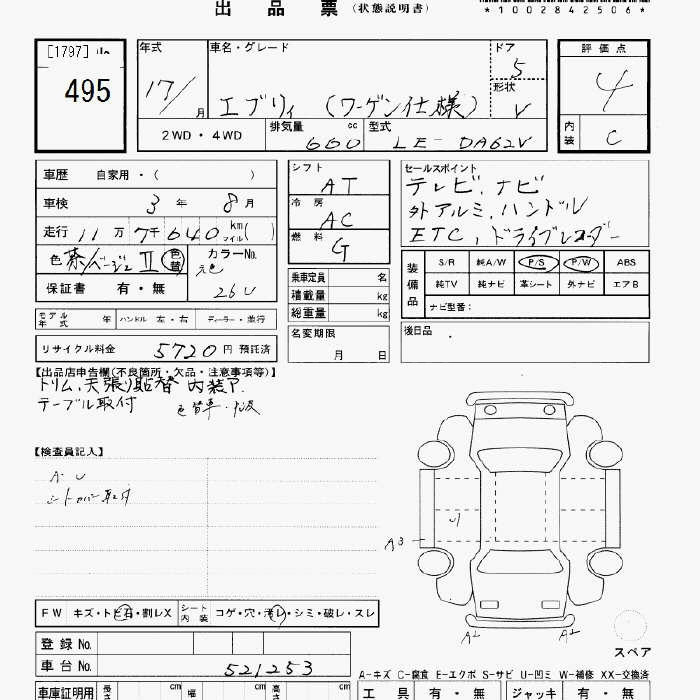 出品票(状態説明書)
*1002842506*
[1797] 山
495
年式
17/ 月
車名・グレード
エブリィ (ワーゲン仕様)
ドア
5
形状
V
評価点
4
内装
C
2WD・4WD
排気量
660 cc
型式
LE-DA62V
車歴 自家用・( )
車検 3年 8月
走行 11万7千640 km マイル( )
色 茶/ベージュ II 色替
カラーNo.
元色
26U
保証書 有・無
モデル年式 年
ハンドル 左・右
ディーラー・並行
リサイクル料金 5720円 預託済
シフト
AT
冷房
AC
燃料
G
乗車定員 名
積載量 kg
総重量 kg
名変期限
月 日
セールスポイント
テレビ、ナビ
外アルミ、ハンドル
ETC、ドライブレコーダー
装備品
S/R 純A/W P/S P/W ABS
純TV 純ナビ 革シート 外ナビ エアB
ナビ型番:
後日品
【出品店申告欄(不良箇所・欠品・注意事項等)】
トリム、天張り貼替 内装P.
テーブル取付
色替車・
【検査員記入】
A・U
シートカバー取付
U
A3
A2 A2
スペア
FW キズ・トビ石・割レX
シート内装 コゲ・穴・汚レ・シミ・破レ・スレ
登録No.
車台No. 521253
A-キズ C-腐食 E-エクボ S-サビ U-凹ミ W-補修 XX-交換済
車庫証明用 長さ cm 幅 cm 高さ cm
工具 有・無 ジャッキ 有・無